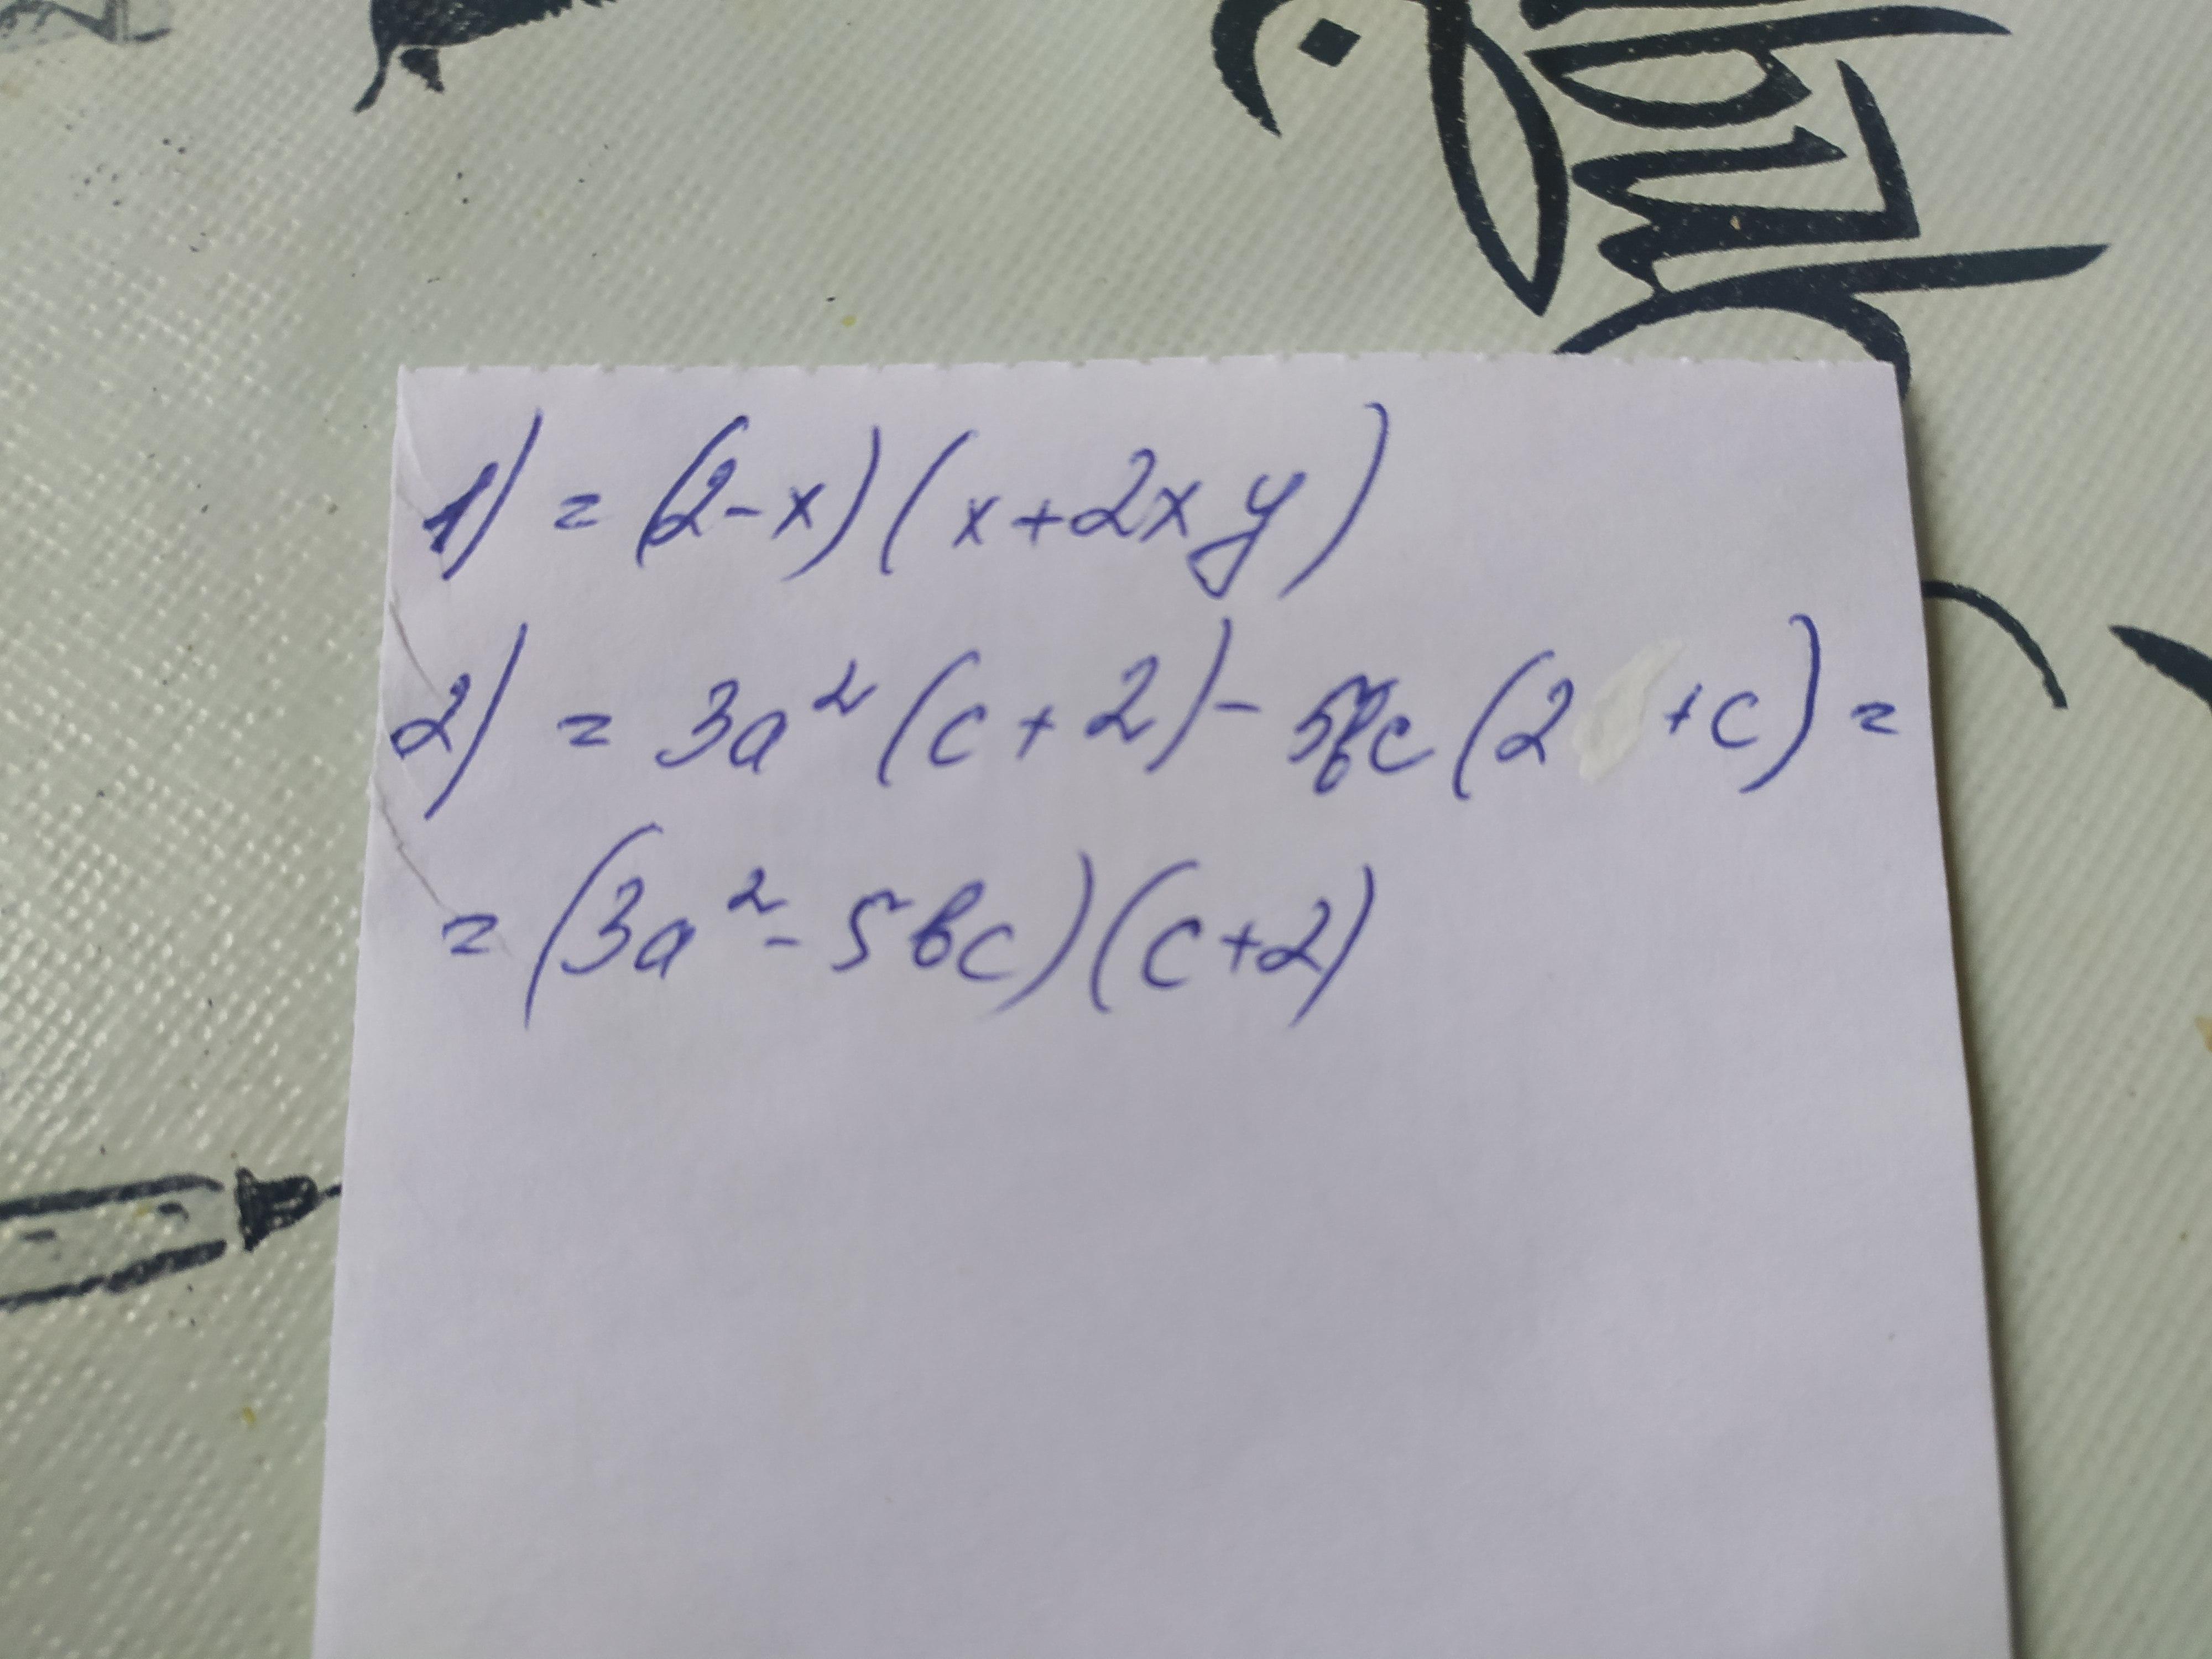 1) = (2-x)(x+2xy)
2) = 3a² (c+2) - 5bc (2 +c) =
= (3a² - 5bc)(c+2)